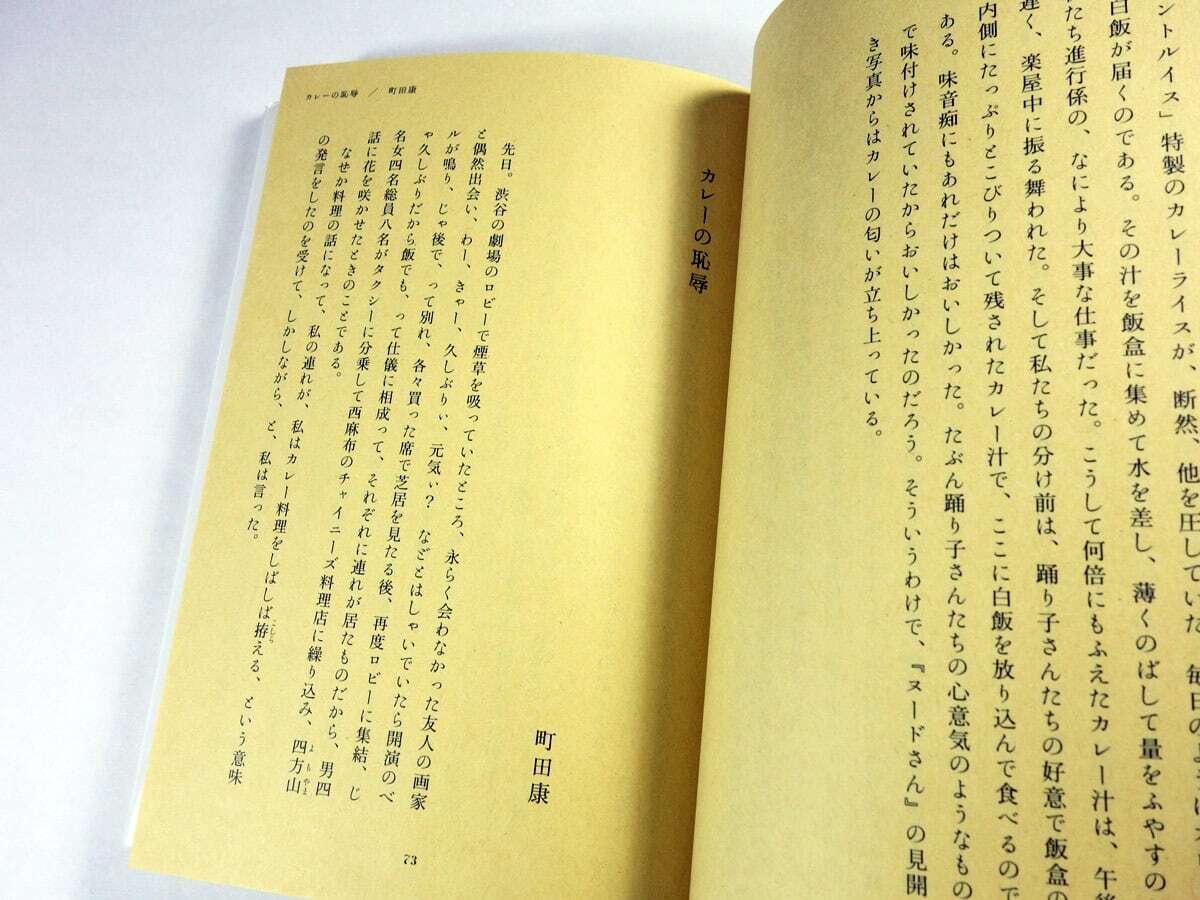 ントルイス」特製のカレーライスが、断然、他を圧していた。毎日のように
白飯が届くのである。その汁を飯盒に集めて水を差し、薄くのばして量をふやすの
たち進行係の、なにより大事な仕事だった。こうして何倍にもふえたカレー汁は、午後
遅く、楽屋中に振る舞われた。そして私たちの分け前は、踊り子さんたちの好意で飯盒の
内側にたっぷりとこびりついて残されたカレー汁で、ここに白飯を放り込んで食べるので
ある。味音痴にもあれだけはおいしかった。たぶん踊り子さんたちの心意気のようなもの
で味付けされていたからおいしかったのだろう。そういうわけで、『ヌードさん』の見開
き写真からはカレーの匂いが立ち上っている。
カレーの恥辱 / 町田康
カレーの恥辱
町田康
先日。渋谷の劇場のロビーで煙草を吸っていたところ、永らく会わなかった友人の画家
と偶然出会い、わー、きゃー、久しぶりぃ、元気ぃ? などとはしゃいでいたら開演のベ
ルが鳴り、じゃ後で、って別れ、各々買った席で芝居を見たる後、再度ロビーに集結、じ
ゃ久しぶりだから飯でも、って仕儀に相成って、それぞれに連れが居たものだから、男四
名女四名総員八名がタクシーに分乗して西麻布のチャイニーズ料理店に繰り込み、四方山
よもやま
話に花を咲かせたときのことである。
なぜか料理の話になって、私の連れが、私はカレー料理をしばしば拵える、という意味
こしら
の発言をしたのを受けて、しかしながら、と、私は言った。
73